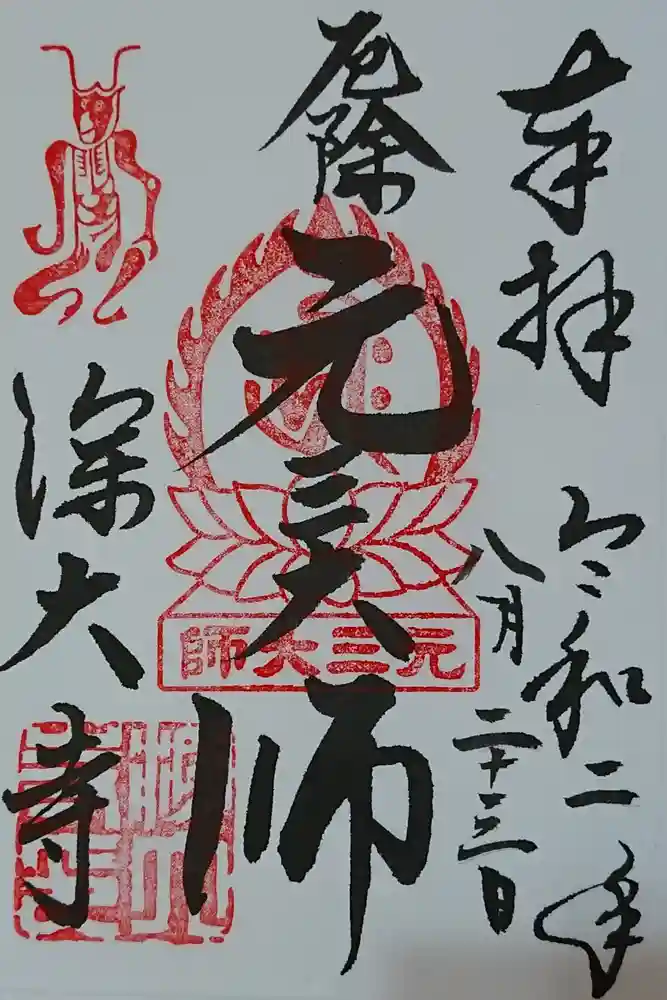 奉拝
令和二年
八月
二十三日
厄除
元三大師
師大三元
深大寺